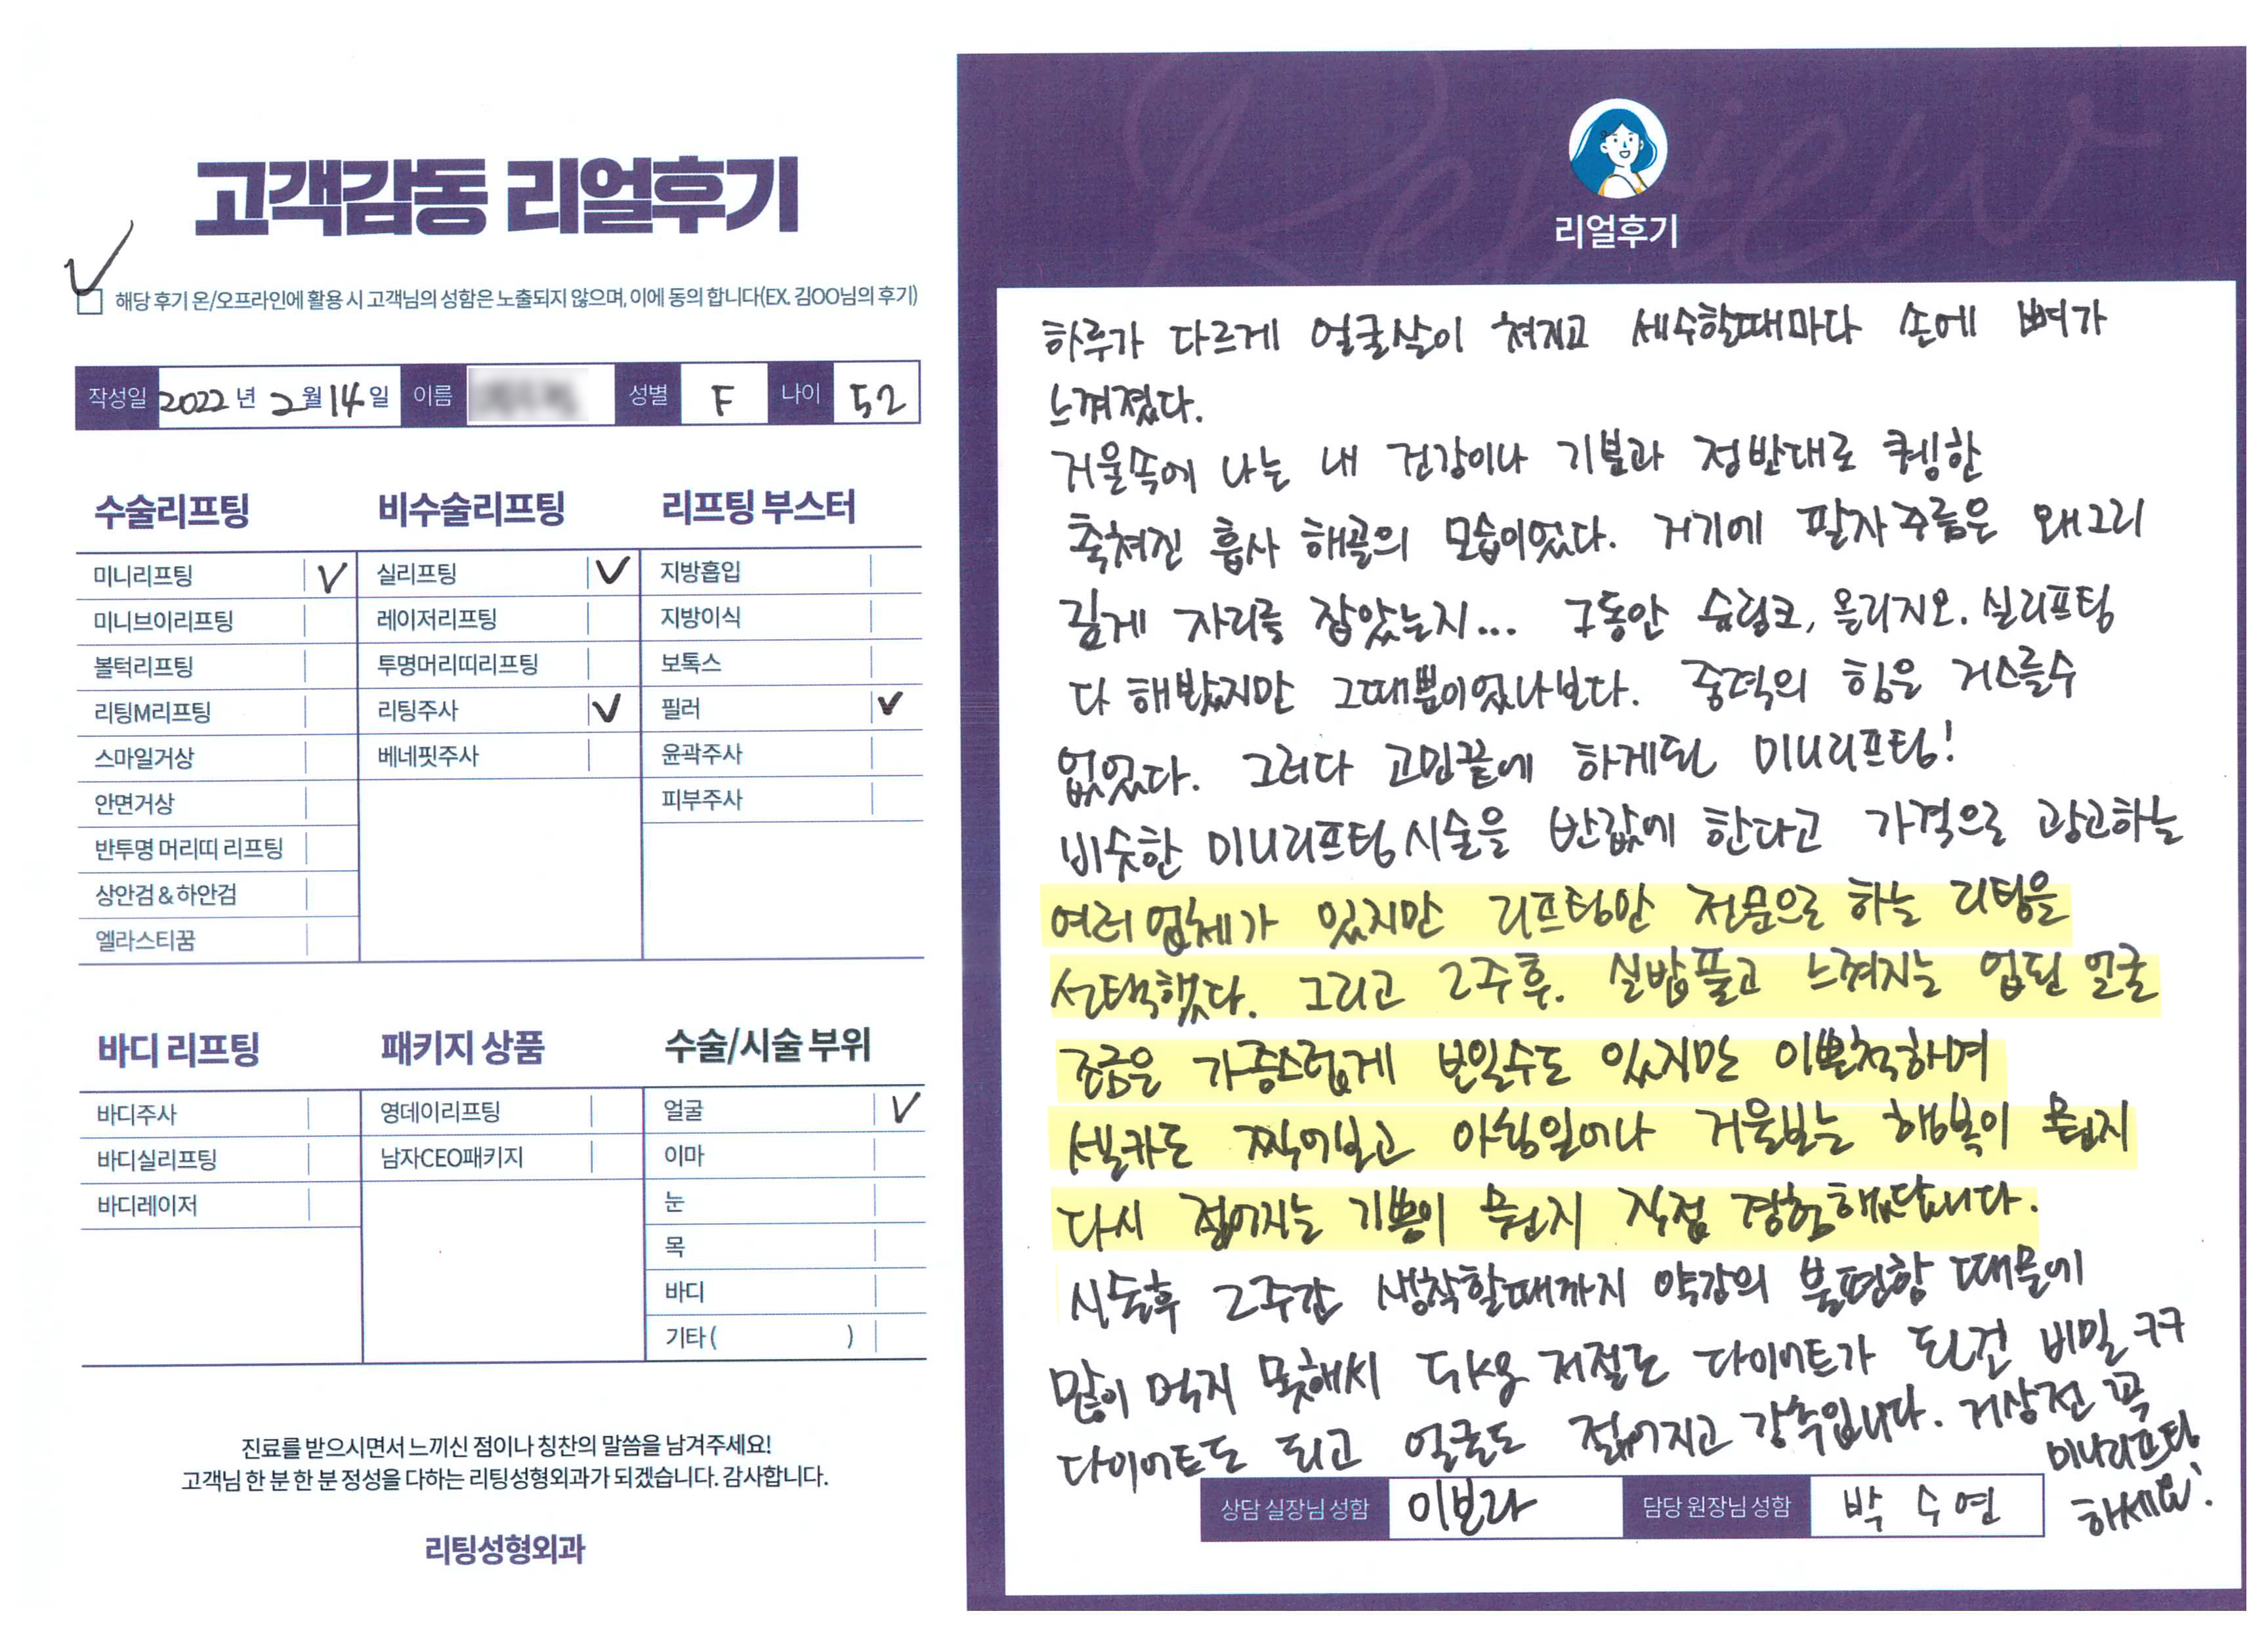 고객감동 리얼후기
해당 후기 온/오프라인에 활용 시 고객님의 성함은 노출되지 않으며, 이에 동의 합니다(EX. 김OO님의 후기)
작성일 2022년 2월 14일 이름 성별 F 나이 52
수술리프팅
미니리프팅 V
미니브이리프팅
볼턱리프팅
리팅M리프팅
스마일거상
안면거상
반투명 머리띠 리프팅
상안검 & 하안검
엘라스티꿈
비수술리프팅
실리프팅 V
레이저리프팅
투명머리띠리프팅
리팅주사 V
베네핏주사
리프팅 부스터
지방흡입
지방이식
보톡스
필러 V
윤곽주사
피부주사
바디 리프팅
바디주사
바디실리프팅
바디레이저
패키지 상품
영데이리프팅
남자CEO패키지
수술/시술 부위
얼굴 V
이마
눈
목
바디
기타 ( )
진료를 받으시면서 느끼신 점이나 칭찬의 말씀을 남겨주세요!
고객님 한 분 한 분 정성을 다하는 리팅성형외과가 되겠습니다. 감사합니다.
리팅성형외과
Review
리얼후기
하루가 다르게 얼굴살이 쳐지고 세수할때마다 손에 뼈가
느껴졌다.
거울쏙에 나는 내 건강이나 기분과 정반대로 퀭한
축쳐진 흡사 해골의 모습이었다. 거기에 팔자주름은 왜그리
깊게 자리를 잡았는지... 그동안 슈링크, 올리지오. 실리프팅
다 해봤지만 그때뿐이었나보다. 중력의 힘은 거스를수
없었다. 그러다 고민끝에 하게된 미니리프팅!
비슷한 미니리프팅 시술을 반값에 한다고 가격으로 광고하는
여러 업체가 있지만 리프팅만 전문으로 하는 리팅을
선택했다. 그리고 2주후. 실밥풀고 느껴지는 업된 얼굴
조금은 가증스럽게 보일수도 있지만 이쁜척하며
셀카도 찍어보고 아침일어나 거울보는 행복이 뭔지
다시 젊어지는 기쁨이 뭔지 직접 경험했답니다.
시술후 2주간 생착할때까지 약간의 불편함 때문에
많이 먹지 못해서 저절로 다이어트가 된건 비밀 ㅋㅋ
다이어트도 되고 얼굴도 젊어지고 강추입니다. 거상전 꼭
미니리프팅
하세요!
상담 실장님 성함 이보라 담당 원장님 성함 박수연